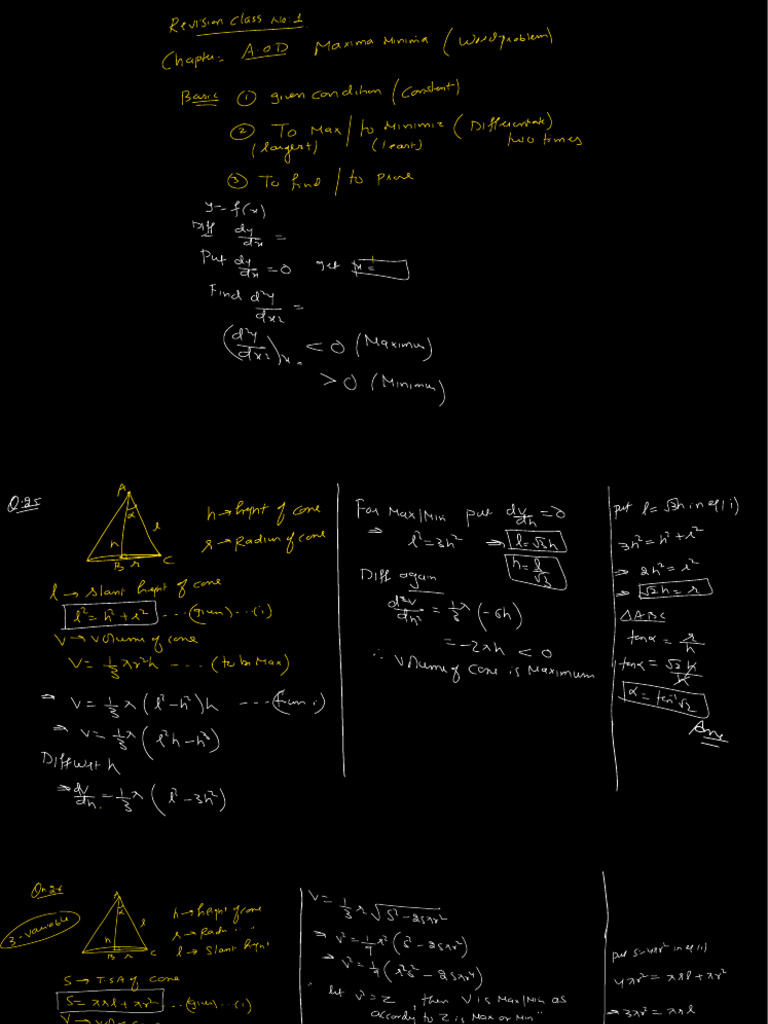 Revision Class No: 1
Chapter: A.O.D Maxima Minima (Word problem)
Basic ① given condition (Constant)
② To Max / to Minimiz (Differentiate)
(largest) (least) two times
③ To find / to prove
y = f(x)
Diff dy/dx =
Put dy/dx = 0 get x =
Find d²y/dx² =
(d²y/dx²)x = < 0 (Maximum)
> 0 (Minimum)
Q.25
A
α
l
h
B r C
h → height of cone
r → Radius of cone
l → slant height of cone
l² = h² + r² ... (given) ... (i)
V → volume of cone
V = 1/3 πr²h ... (to be Max)
⇒ V = 1/3 π (l² - h²) h ... (from i)
⇒ V = 1/3 π (l²h - h³)
Diff w.r.t h
⇒ dv/dh = 1/3 π (l² - 3h²)
For Max/Min put dv/dh = 0
⇒ l² = 3h² ⇒ l = √3h
h = l/√3
Diff again
d²v/dh² = 1/3 π (-6h)
= -2πh < 0
∴ volume of cone is Maximum
put l = √3h in eq (i)
3h² = h² + r²
⇒ 2h² = r²
⇒ √2h = r
ΔABC
tanα = r/h
tanα = √2h/h
α = tan⁻¹√2
Ans
Qn 26
3-variable
A
α
l
h
B r C
h → height of cone
r → Radi " "
l → slant hight
S → T.S.A of cone
S = πrl + πr² ... (given) ... (i)
V = 1/3 r √(S² - 2Sπr²)
⇒ V² = 1/9 r² (S² - 2Sπr²)
⇒ V² = 1/9 (r²S² - 2Sπr⁴)
let V² = Z, then V is Max/Min as
accordly to Z is Max or Min"
put S = 4πr² in eq (i)
4πr² = πrl + πr²
⇒ 3πr² = πrl